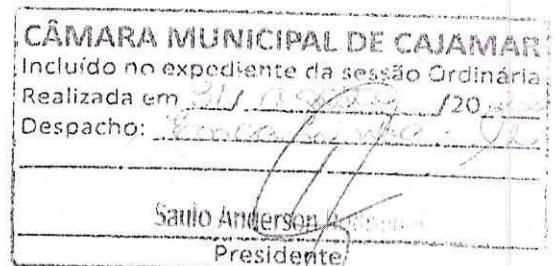 CÂMARA MUNICIPAL DE CAJAMAR
Incluído no expediente da sessão Ordinária
Realizada em 31/ /20
Despacho:
Saulo Anderson
Presidente